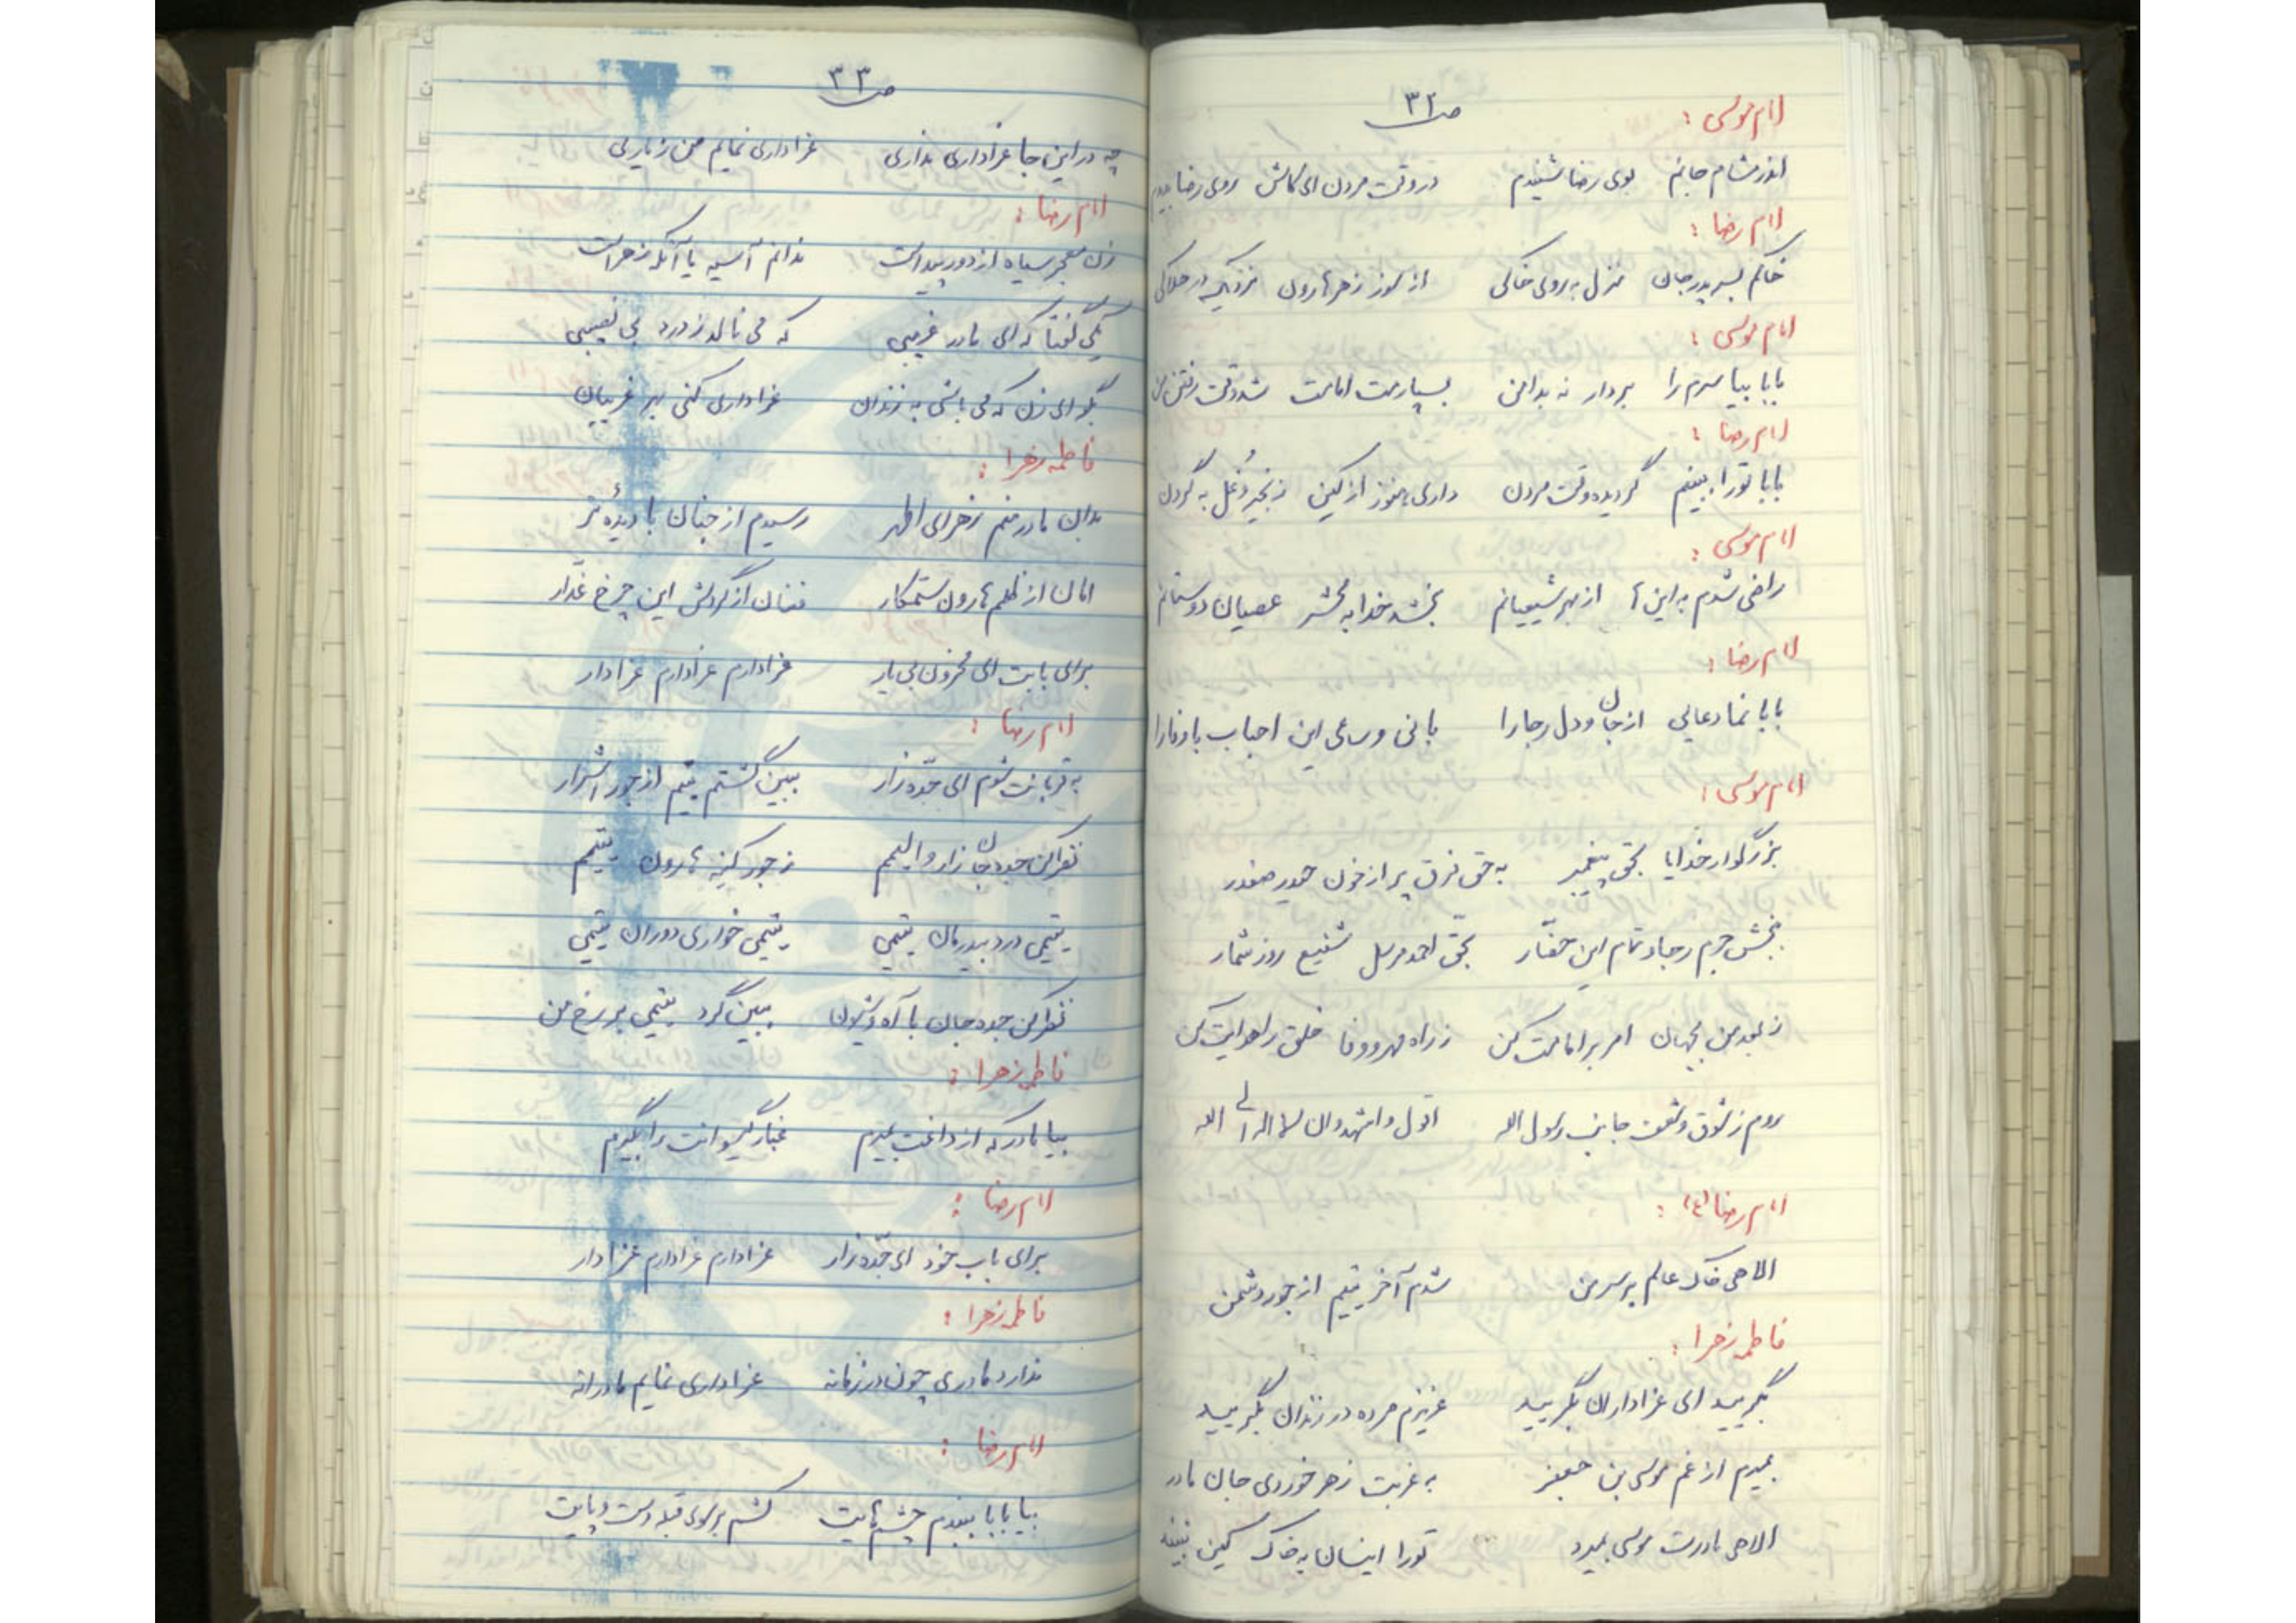 ص ۳۲
امام موسی :
اندر مشام جانم بوی رضا شنیدم در وقت مردن ای کاش روی رضا بدیدم
امام رضا :
خاکم بسر پدر جان منزل به روی خاکی از سوز زهر هارون نزدیک در هلاکی
امام موسی :
بابا بیا سرم را بردار نه بدامن بسپارمت امامت شد وقت رفتن من
امام رضا :
بابا تو را ببینم گردیده وقت مردن داری هنوز از کین زنجیر و غُل به گردن
امام موسی :
راضی شدم به این ها از بهر شیعیانم بخشد خدا به محشر عصیان دوستانم
امام رضا :
بابا نما دعایی از جان و دل رجا را بانی و ساعی این احباب باوفا را
امام موسی :
بزرگوار خدایا بحق پیغمبر به حق فرق پر از خون حیدر صفدر
ببخش جرم رجا و تمام این حضّار بحق احمد مرسل شفیع روز شمار
ز بعد من بجهان امر بر امامت کن ز راه مهر و وفا خلق را هدایت کن
روم ز شوق و شعف جانب رسول الله اقول و اشهدوان لا اله الی الله
امام رضا (ع) :
الاهی خاک عالم بر سر من شدم آخر یتیم از جور دشمن
فاطمه زهرا :
بگریید ای عزاداران بگریید عزیزم مرده در زندان بگریید
بمیرم از غم موسی بن جعفر به غربت زهر خوردی جان مادر
الاهی مادرت موسی بمیرد تو را اینسان به خاک کین نبیند
ص ۳۳
چه در این جا عزاداری نداری عزاداری نمایم من ز یاری
امام رضا :
زن معجر سیاه از دور پیداست ندانم آسیه یا آنکه زهراست
یکی گفتا که ای مادر غریبی که می نالد ز درد بی نصیبی
بگو ای زن که می باشی به زندان عزاداری کنی بهر غریبان
فاطمه زهرا :
بدان مادر منم زهرای اطهر رسیدم از جنان با دیدهٔ تر
امان از ظلم هارون ستمکار فغان از گردش این چرخ غدّار
برای بابت ای محزون بی یار عزادارم عزادارم عزادار
امام رضا :
به قربانت شوم ای جدّه زار ببین گشتم یتیم از جور اشرار
نظر کن جده جان زار و الیمم ز جور کینه هارون یتیمم
یتیمی درد بیدرمان یتیمی یتیمی خواری دوران یتیمی
نظر کن جده جان با آه و شیون ببین گرد یتیمی بر رخ من
فاطمه زهرا :
بیا مادر که از داغت بمیرم غبار گیسوانت را بگیرم
امام رضا :
برای باب خود ای جدّه زار عزادارم عزادارم عزادار
فاطمه زهرا :
ندارد مادری چون در زمانه عزاداری نمایم مادرانه
امام رضا :
بیا بابا ببندم چشم هایت کشم بر سوی قبله دست و پایت